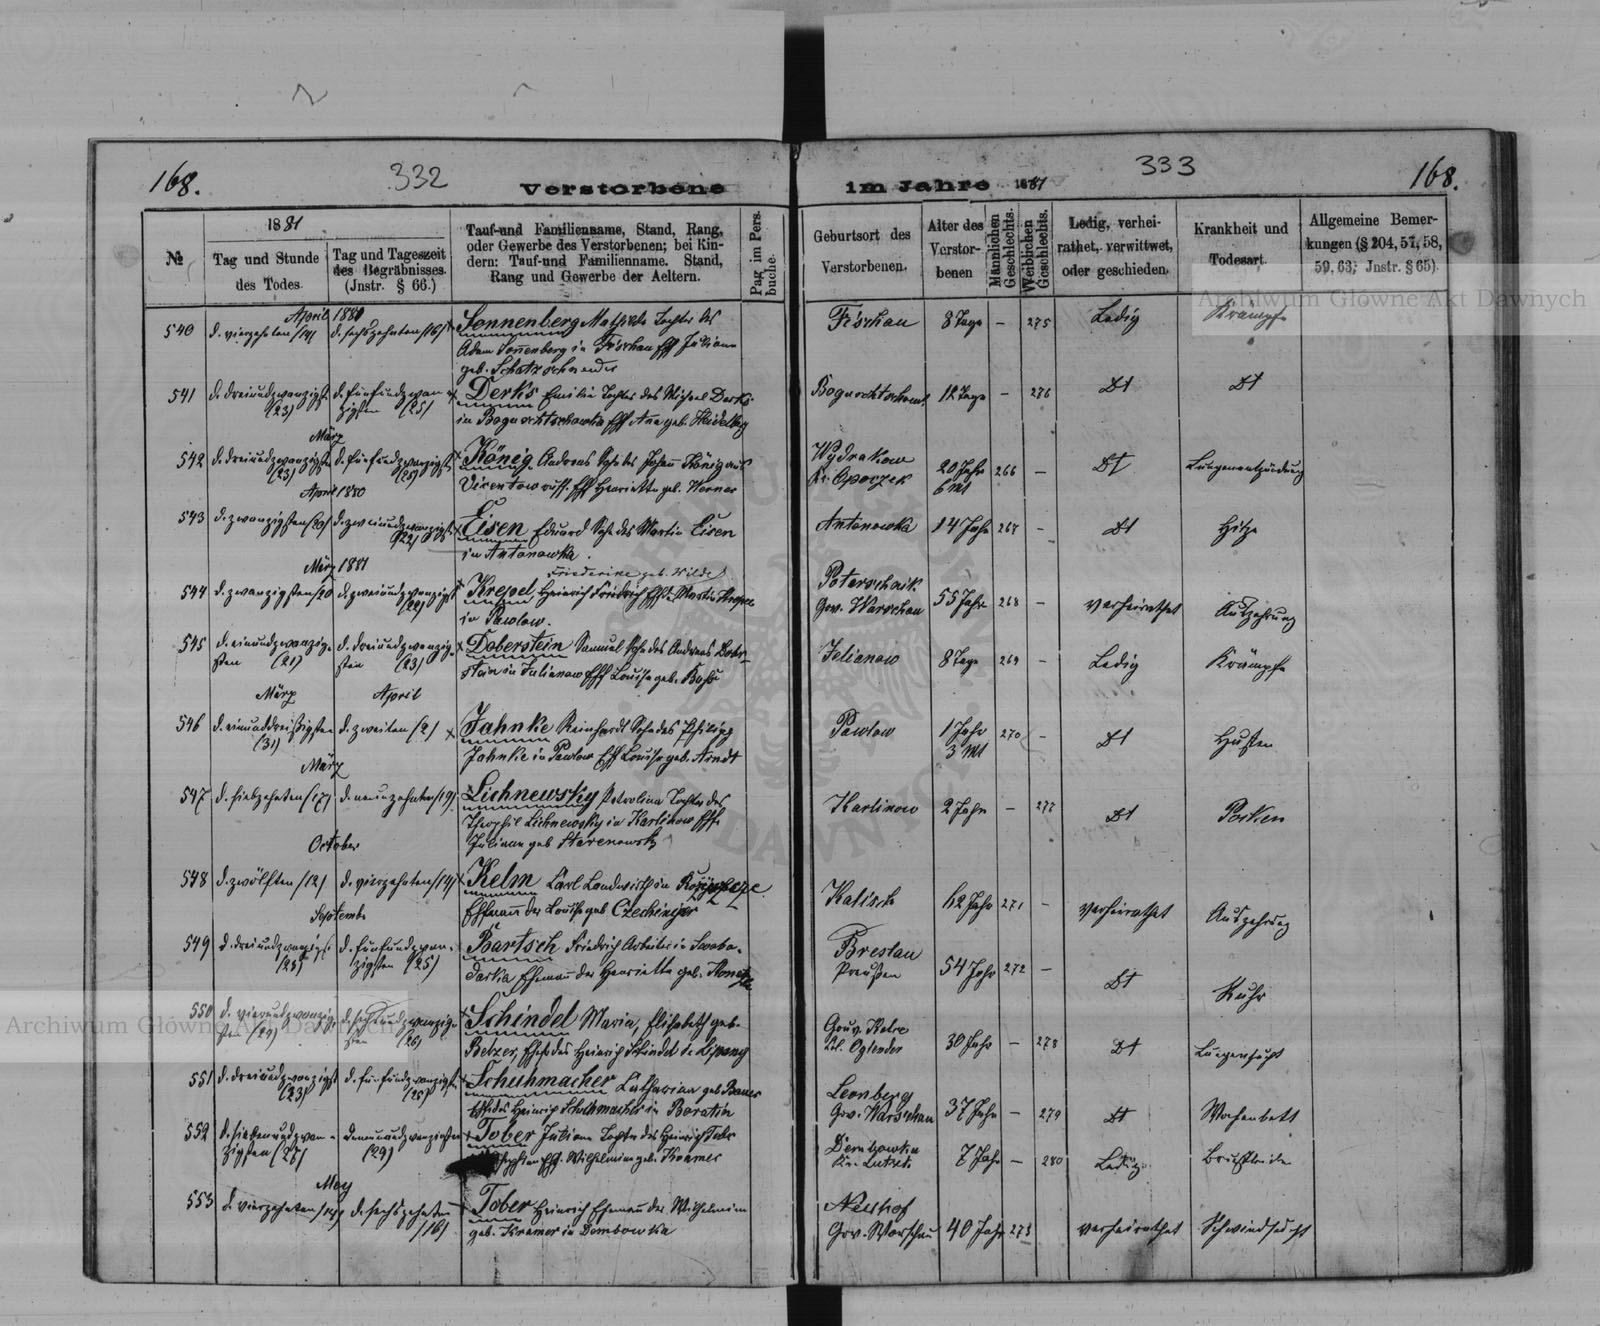 168.
332
Verstorbene
im Jahre 1881
333
168.
№
1881
Tag und Stunde
des Todes.
Tag und Tageszeit
des Begräbnisses.
(Jnstr. § 66.)
Tauf-und Familienname, Stand, Rang,
oder Gewerbe des Verstorbenen; bei Kin-
dern: Tauf-und Familienname. Stand,
Rang und Gewerbe der Aeltern.
Pag im Pers.
buche.
Geburtsort des
Verstorbenen.
Alter des
Verstor-
benen
Männlichen
Geschlechts.
Weiblichen
Geschlechts.
Ledig, verhei-
rathet, verwittwet,
oder geschieden.
Krankheit und
Todesart.
Allgemeine Bemer-
kungen (§ 204, 57, 58,
59, 63; Jnstr. § 65).
Archiwum Główne Akt Dawnych
April 1881
540 d. vierzehnten (14) d. sechszehnten (16) Sonnenberg Mathilde Tochter des
Adam Sonnenberg in
geb.
8 Tage – 275 Ledig Krämpfe
541 d. dreiundzwanzigsten (23) d. fünfundzwanzigsten (25) Derks Emilie Tochter des Michael Derks
geb. Heidelberg
12 Tage – 276 Dt Dt
März
542 d. dreiundzwanzigsten (23) d. fünfundzwanzigsten (25) König Andreas Sohn des Johann König aus
Henriette geb. Werner
Wydrakow
20 Jahr 6 Mt 266 – Dt Lungenentzündung
April 1880
543 d. zwanzigsten (20) d. zweiundzwanzigsten (22) Eisen Eduard Sohn des Martin Eisen
in Antonowka.
Antonowka 14 Jahr 267 – Dt Hitze
März 1881
Friederike geb. Wilde
544 d. zwanzigsten (20 d. zweiundzwanzigst (22) Krepel, Heinrich Friedrich
in Pawlow.
Gov. Warschau 55 Jahr 268 – verheirathet Auszehrung
545 d. einundzwanzigsten (21) d. dreiundzwanzigsten (23) Doberstein Samuel Sohn des Andreas Dober-
stein in Julianow Louise geb.
Julianow 8 Tage 269 – Ledig Krämpfe
März April
546 d. einunddreißigsten (31) d. zweiten (2) Jahnke Reinhardt Sohn des Philipp
Jahnke in Pawlow Louise geb. Arndt
Pawlow 1 Jahr 3 Mt 270 – Dt Husten
März
547 d. siebzehnten (17) d. neunzehnten (19) Lichnewsky Petrolina Tochter des
Theophil Lichnewsky in Karlinow
Juliana geb
Karlinow 2 Jahr – 277 Dt Pocken
October
548 d. zwölften (12) d. vierzehnten (14) Kelm Carl Landwirth in
Ehemann der Louise geb
Kalisch 62 Jahr 271 – verheirathet Auszehrung
September
549 d. dreiundzwanzigst (23) d. fünfundzwanzigsten (25) Bartsch Friedrich Arbeiter in
Ehemann der Henriette geb.
Breslau
Preußen 54 Jahr 272 – Dt Ruhr
550 d. vierundzwanzigsten (24) d. sechsundzwanzigsten (26) Schindel Maria, Elisabeth geb.
Betzer, Ehefr des Heinrich Schindel
30 Jahr – 278 Dt Lungensucht
551 d. dreiundzwanzigst (23) d. fünfundzwanzigsten (25) Schuhmacher Catharina geb Bauer
Ehefr des Heinrich Schuhmacher in Boratin
Leonberg
Gov. Warschau 37 Jahr – 279 Dt Wochenbett
552 d. siebenundzwanzigsten (27) d. neunundzwanzigsten (29) Tober Juliana Tochter des Heinrich Tober
Wilhelmine geb. Kramer
Dembowka
Kr. Lutzk 7 Jahr – 280 Ledig
May
553 d. vierzehnten (14) d. sechszehnten (16) Tober Heinrich Ehemann der Wilhelmine
geb. Kramer in Dombowka
Neuhof
Gov. Warschau 40 Jahr 273 verheirathet Schwindsucht
Archiwum Główne Akt Dawnych